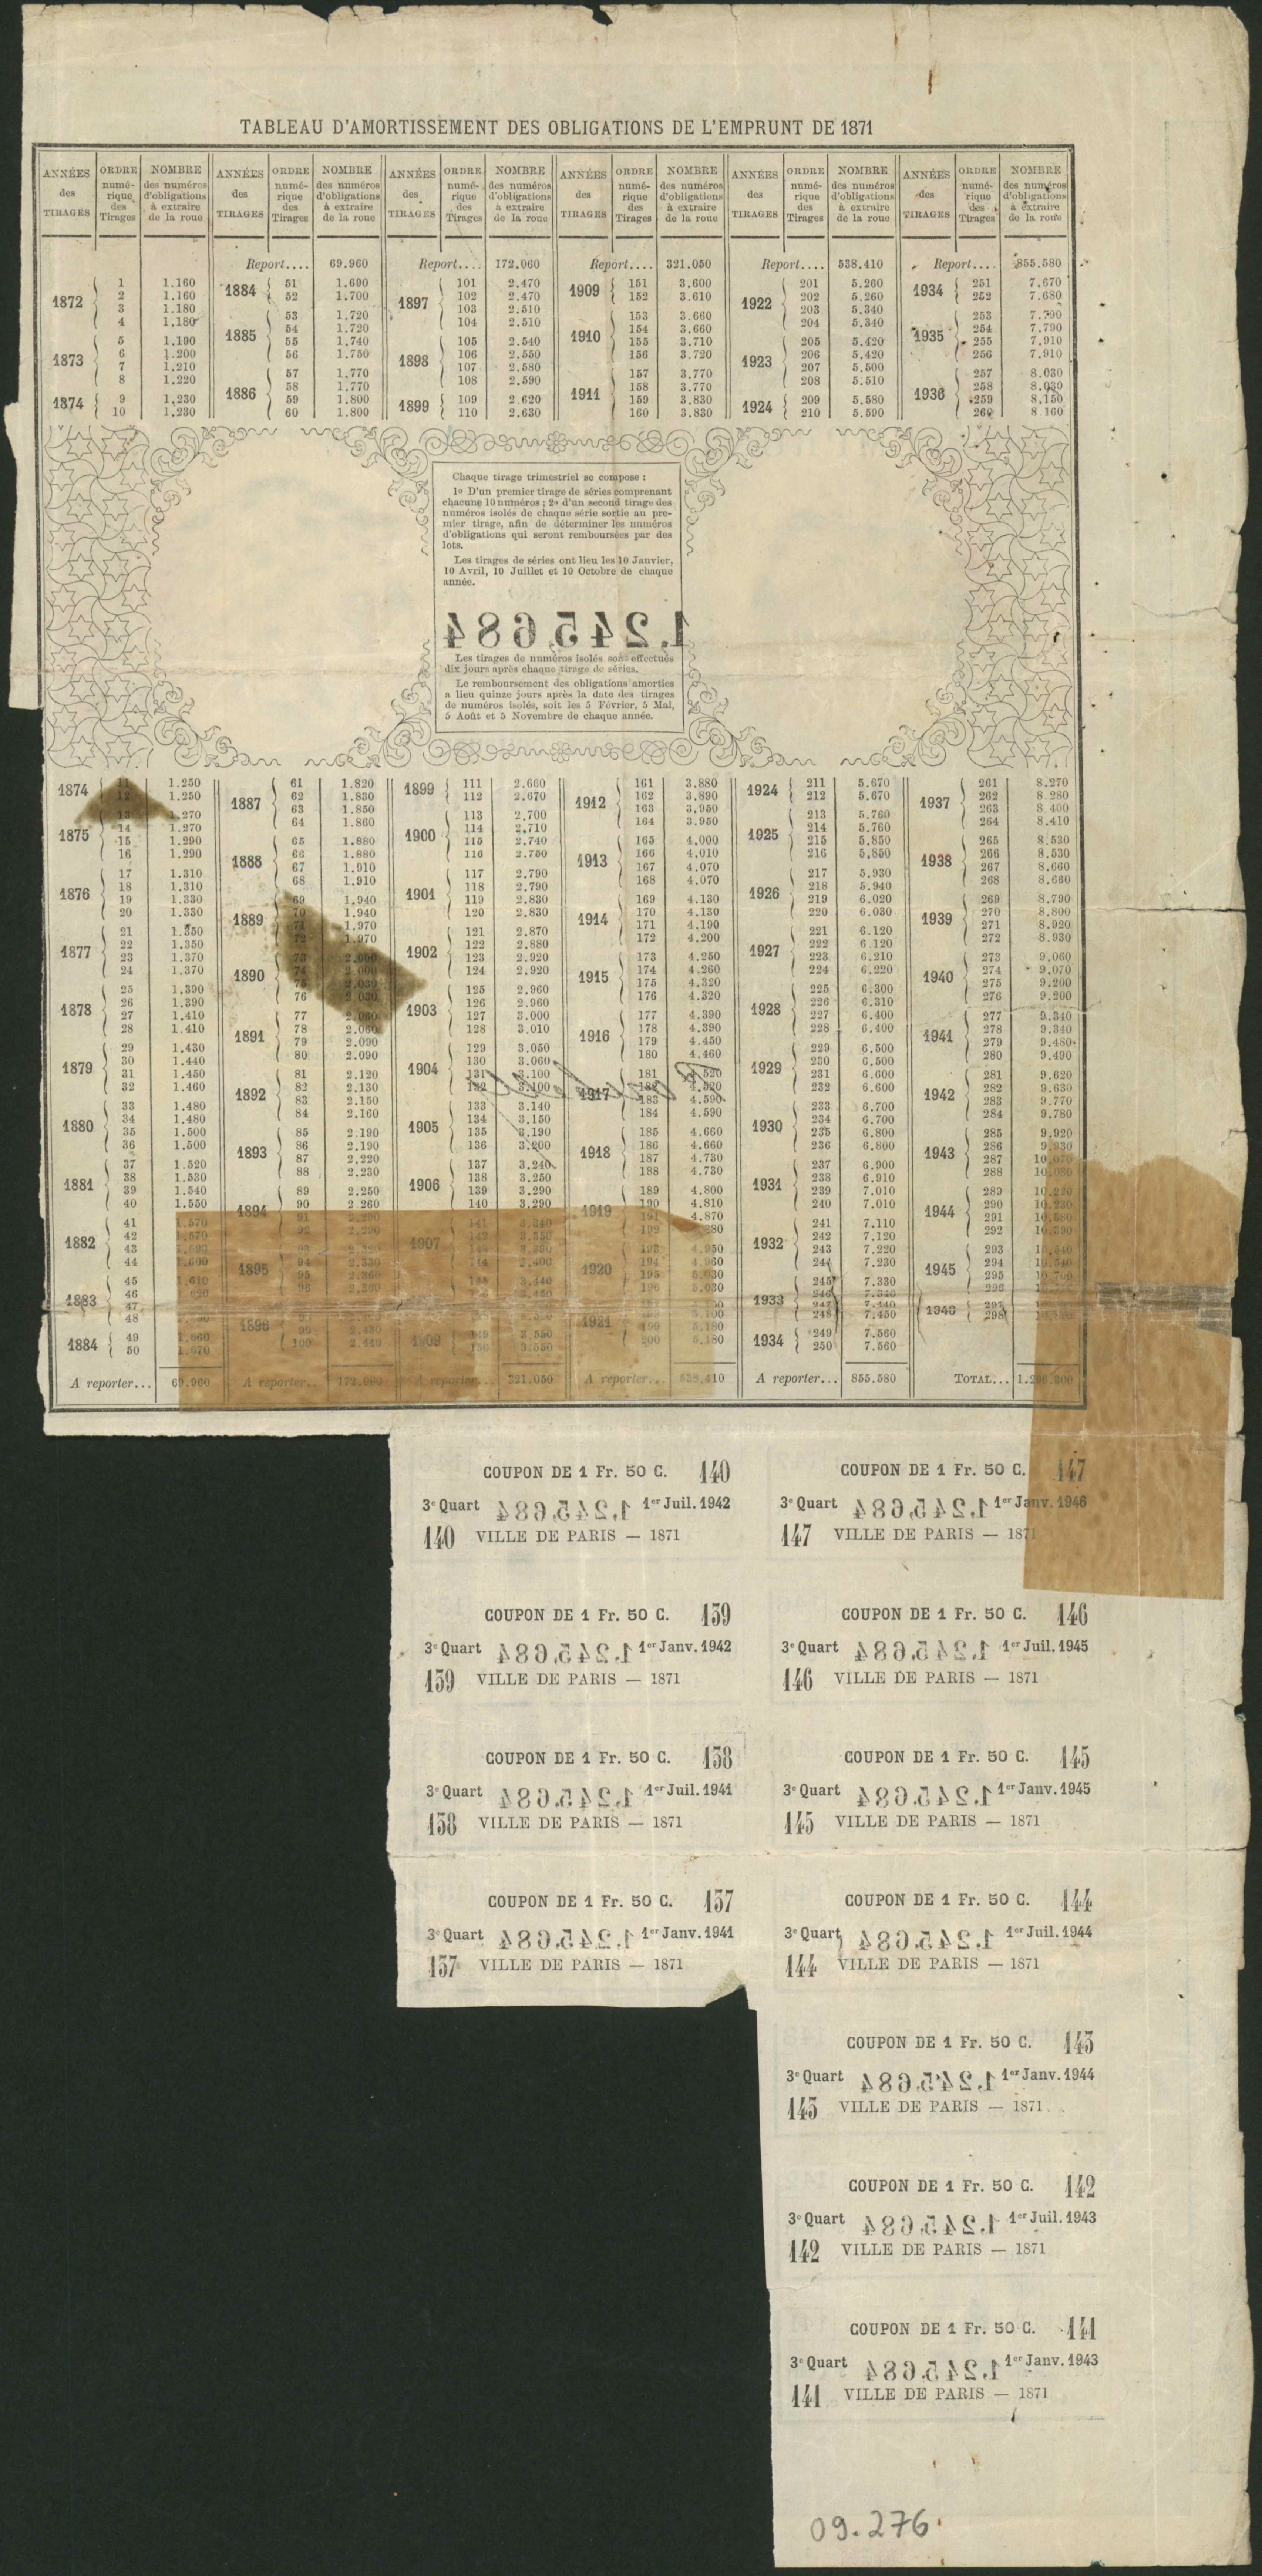 TABLEAU D'AMORTISSEMENT DES OBLIGATIONS DE L'EMPRUNT DE 1871
ANNÉES des TIRAGES ORDRE numérique des Tirages NOMBRE des numéros d'obligations à extraire de la roue
1872
1 1.160
2 1.160
3 1.180
4 1.180
1873
5 1.190
6 1.200
7 1.210
8 1.220
1874
9 1.230
10 1.230
ANNÉES des TIRAGES ORDRE numérique des Tirages NOMBRE des numéros d'obligations à extraire de la roue
Report.... 69.960
1884
51 1.690
52 1.700
1885
53 1.720
54 1.720
55 1.740
56 1.750
1886
57 1.770
58 1.770
59 1.800
60 1.800
ANNÉES des TIRAGES ORDRE numérique des Tirages NOMBRE des numéros d'obligations à extraire de la roue
Report.... 172.060
1897
101 2.470
102 2.470
103 2.510
104 2.510
1898
105 2.540
106 2.550
107 2.580
108 2.590
1899
109 2.620
110 2.630
ANNÉES des TIRAGES ORDRE numérique des Tirages NOMBRE des numéros d'obligations à extraire de la roue
Report.... 321.050
1909
151 3.600
152 3.610
1910
153 3.660
154 3.660
155 3.710
156 3.720
1911
157 3.770
158 3.770
159 3.830
160 3.830
ANNÉES des TIRAGES ORDRE numérique des Tirages NOMBRE des numéros d'obligations à extraire de la roue
Report.... 538.410
1922
201 5.260
202 5.260
203 5.340
204 5.340
1923
205 5.420
206 5.420
207 5.500
208 5.510
1924
209 5.580
210 5.590
ANNÉES des TIRAGES ORDRE numérique des Tirages NOMBRE des numéros d'obligations à extraire de la roue
Report.... 855.580
1934
251 7.670
252 7.680
1935
253 7.790
254 7.790
255 7.910
256 7.910
1936
257 8.030
258 8.030
259 8.150
260 8.160
Chaque tirage trimestriel se compose :
1o D'un premier tirage de séries comprenant
chacune 10 numéros ; 2o d'un second tirage des
numéros isolés de chaque série sortie au pre-
mier tirage, afin de déterminer les numéros
d'obligations qui seront remboursées par des
lots.
Les tirages de séries ont lieu les 10 Janvier,
10 Avril, 10 Juillet et 10 Octobre de chaque
année.
1.245,684
Les tirages de numéros isolés sont effectués
dix jours après chaque tirage de séries.
Le remboursement des obligations amorties
a lieu quinze jours après la date des tirages
de numéros isolés, soit les 5 Février, 5 Mai,
5 Août et 5 Novembre de chaque année.
1874
11 1.250
12 1.250
1875
13 1.270
14 1.270
15 1.290
16 1.290
1876
17 1.310
18 1.310
19 1.330
20 1.330
1877
21 1.350
22 1.350
23 1.370
24 1.370
1878
25 1.390
26 1.390
27 1.410
28 1.410
1879
29 1.430
30 1.440
31 1.450
32 1.460
1880
33 1.480
34 1.480
35 1.500
36 1.500
1881
37 1.520
38 1.530
39 1.540
40 1.550
1882
41 1.570
42 1.570
43
44 1.600
1883
45 1.610
46
47
48
1884
49 1.660
50 1.670
A reporter... 69.960
1887
61 1.820
62 1.830
63 1.850
64 1.860
1888
65 1.880
66 1.880
67 1.910
68 1.910
1889
69 1.940
70 1.940
71 1.970
72 1.970
1890
73 2.000
74 2.000
75 2.030
76 2.030
1891
77 2.060
78 2.060
79 2.090
80 2.090
1892
81 2.120
82 2.130
83 2.150
84 2.160
1893
85 2.190
86 2.190
87 2.220
88 2.230
1894
89 2.250
90 2.260
91 2.290
92 2.290
1895
93
94 2.330
95 2.360
96 2.360
1896
99 2.430
100 2.440
A reporter... 172.060
1899
111 2.660
112 2.670
1900
113 2.700
114 2.710
115 2.740
116 2.750
1901
117 2.790
118 2.790
119 2.830
120 2.830
1902
121 2.870
122 2.880
123 2.920
124 2.920
1903
125 2.960
126 2.960
127 3.000
128 3.010
1904
129 3.050
130 3.060
131 3.100
132 3.100
1905
133 3.140
134 3.150
135 3.190
136 3.200
1906
137 3.240
138 3.250
139 3.290
140 3.290
1907
141 3.340
1909
149 3.550
150 3.550
A reporter... 321.050
1912
161 3.880
162 3.890
163 3.950
164 3.950
1913
165 4.000
166 4.010
167 4.070
168 4.070
1914
169 4.130
170 4.130
171 4.190
172 4.200
1915
173 4.250
174 4.260
175 4.320
176 4.320
1916
177 4.390
178 4.390
179 4.450
180 4.460
1917
181 4.520
182 4.520
183 4.590
184 4.590
1918
185 4.660
186 4.660
187 4.730
188 4.730
1919
189 4.800
190 4.810
191 4.870
192
1920
193 4.950
194 4.960
195 5.030
196 5.030
1921
199 5.180
200 5.180
A reporter... 538.410
1924
211 5.670
212 5.670
1925
213 5.760
214 5.760
215 5.850
216 5.850
1926
217 5.930
218 5.940
219 6.020
220 6.030
1927
221 6.120
222 6.120
223 6.210
224 6.220
1928
225 6.300
226 6.310
227 6.400
228 6.400
1929
229 6.500
230 6.500
231 6.600
232 6.600
1930
233 6.700
234 6.700
235 6.800
236 6.800
1931
237 6.900
238 6.910
239 7.010
240 7.010
1932
241 7.110
242 7.120
243 7.220
244 7.230
1933
245 7.330
246 7.340
247 7.440
248 7.450
1934
249 7.560
250 7.560
A reporter... 855.580
1937
261 8.270
262 8.280
263 8.400
264 8.410
1938
265 8.530
266 8.530
267 8.660
268 8.660
1939
269 8.790
270 8.800
271 8.920
272 8.930
1940
273 9.060
274 9.070
275 9.200
276 9.200
1941
277 9.340
278 9.340
279 9.480
280 9.490
1942
281 9.620
282 9.630
283 9.770
284 9.780
1943
285 9.920
286 9.930
287 10.070
288 10.080
1944
289 10.220
290 10.230
291 10.380
292 10.390
1945
293 10.540
294
295 10.700
296
1946
297
298
TOTAL...
COUPON DE 1 Fr. 50 C. 140
3e Quart 1.245,684 1er Juil. 1942
140 VILLE DE PARIS — 1871
COUPON DE 1 Fr. 50 C. 147
3e Quart 1.245,684 1er Janv. 1946
147 VILLE DE PARIS — 1871
COUPON DE 1 Fr. 50 C. 139
3e Quart 1.245,684 1er Janv. 1942
139 VILLE DE PARIS — 1871
COUPON DE 1 Fr. 50 C. 146
3e Quart 1.245,684 1er Juil. 1945
146 VILLE DE PARIS — 1871
COUPON DE 1 Fr. 50 C. 138
3e Quart 1.245,684 1er Juil. 1941
138 VILLE DE PARIS — 1871
COUPON DE 1 Fr. 50 C. 145
3e Quart 1.245,684 1er Janv. 1945
145 VILLE DE PARIS — 1871
COUPON DE 1 Fr. 50 C. 137
3e Quart 1.245,684 1er Janv. 1941
137 VILLE DE PARIS — 1871
COUPON DE 1 Fr. 50 C. 144
3e Quart 1.245,684 1er Juil. 1944
144 VILLE DE PARIS — 1871
COUPON DE 1 Fr. 50 C. 143
3e Quart 1.245,684 1er Janv. 1944
143 VILLE DE PARIS — 1871
COUPON DE 1 Fr. 50 C. 142
3e Quart 1.245,684 1er Juil. 1943
142 VILLE DE PARIS — 1871
COUPON DE 1 Fr. 50 C. 141
3e Quart 1.245,684 1er Janv. 1943
141 VILLE DE PARIS — 1871
09.276